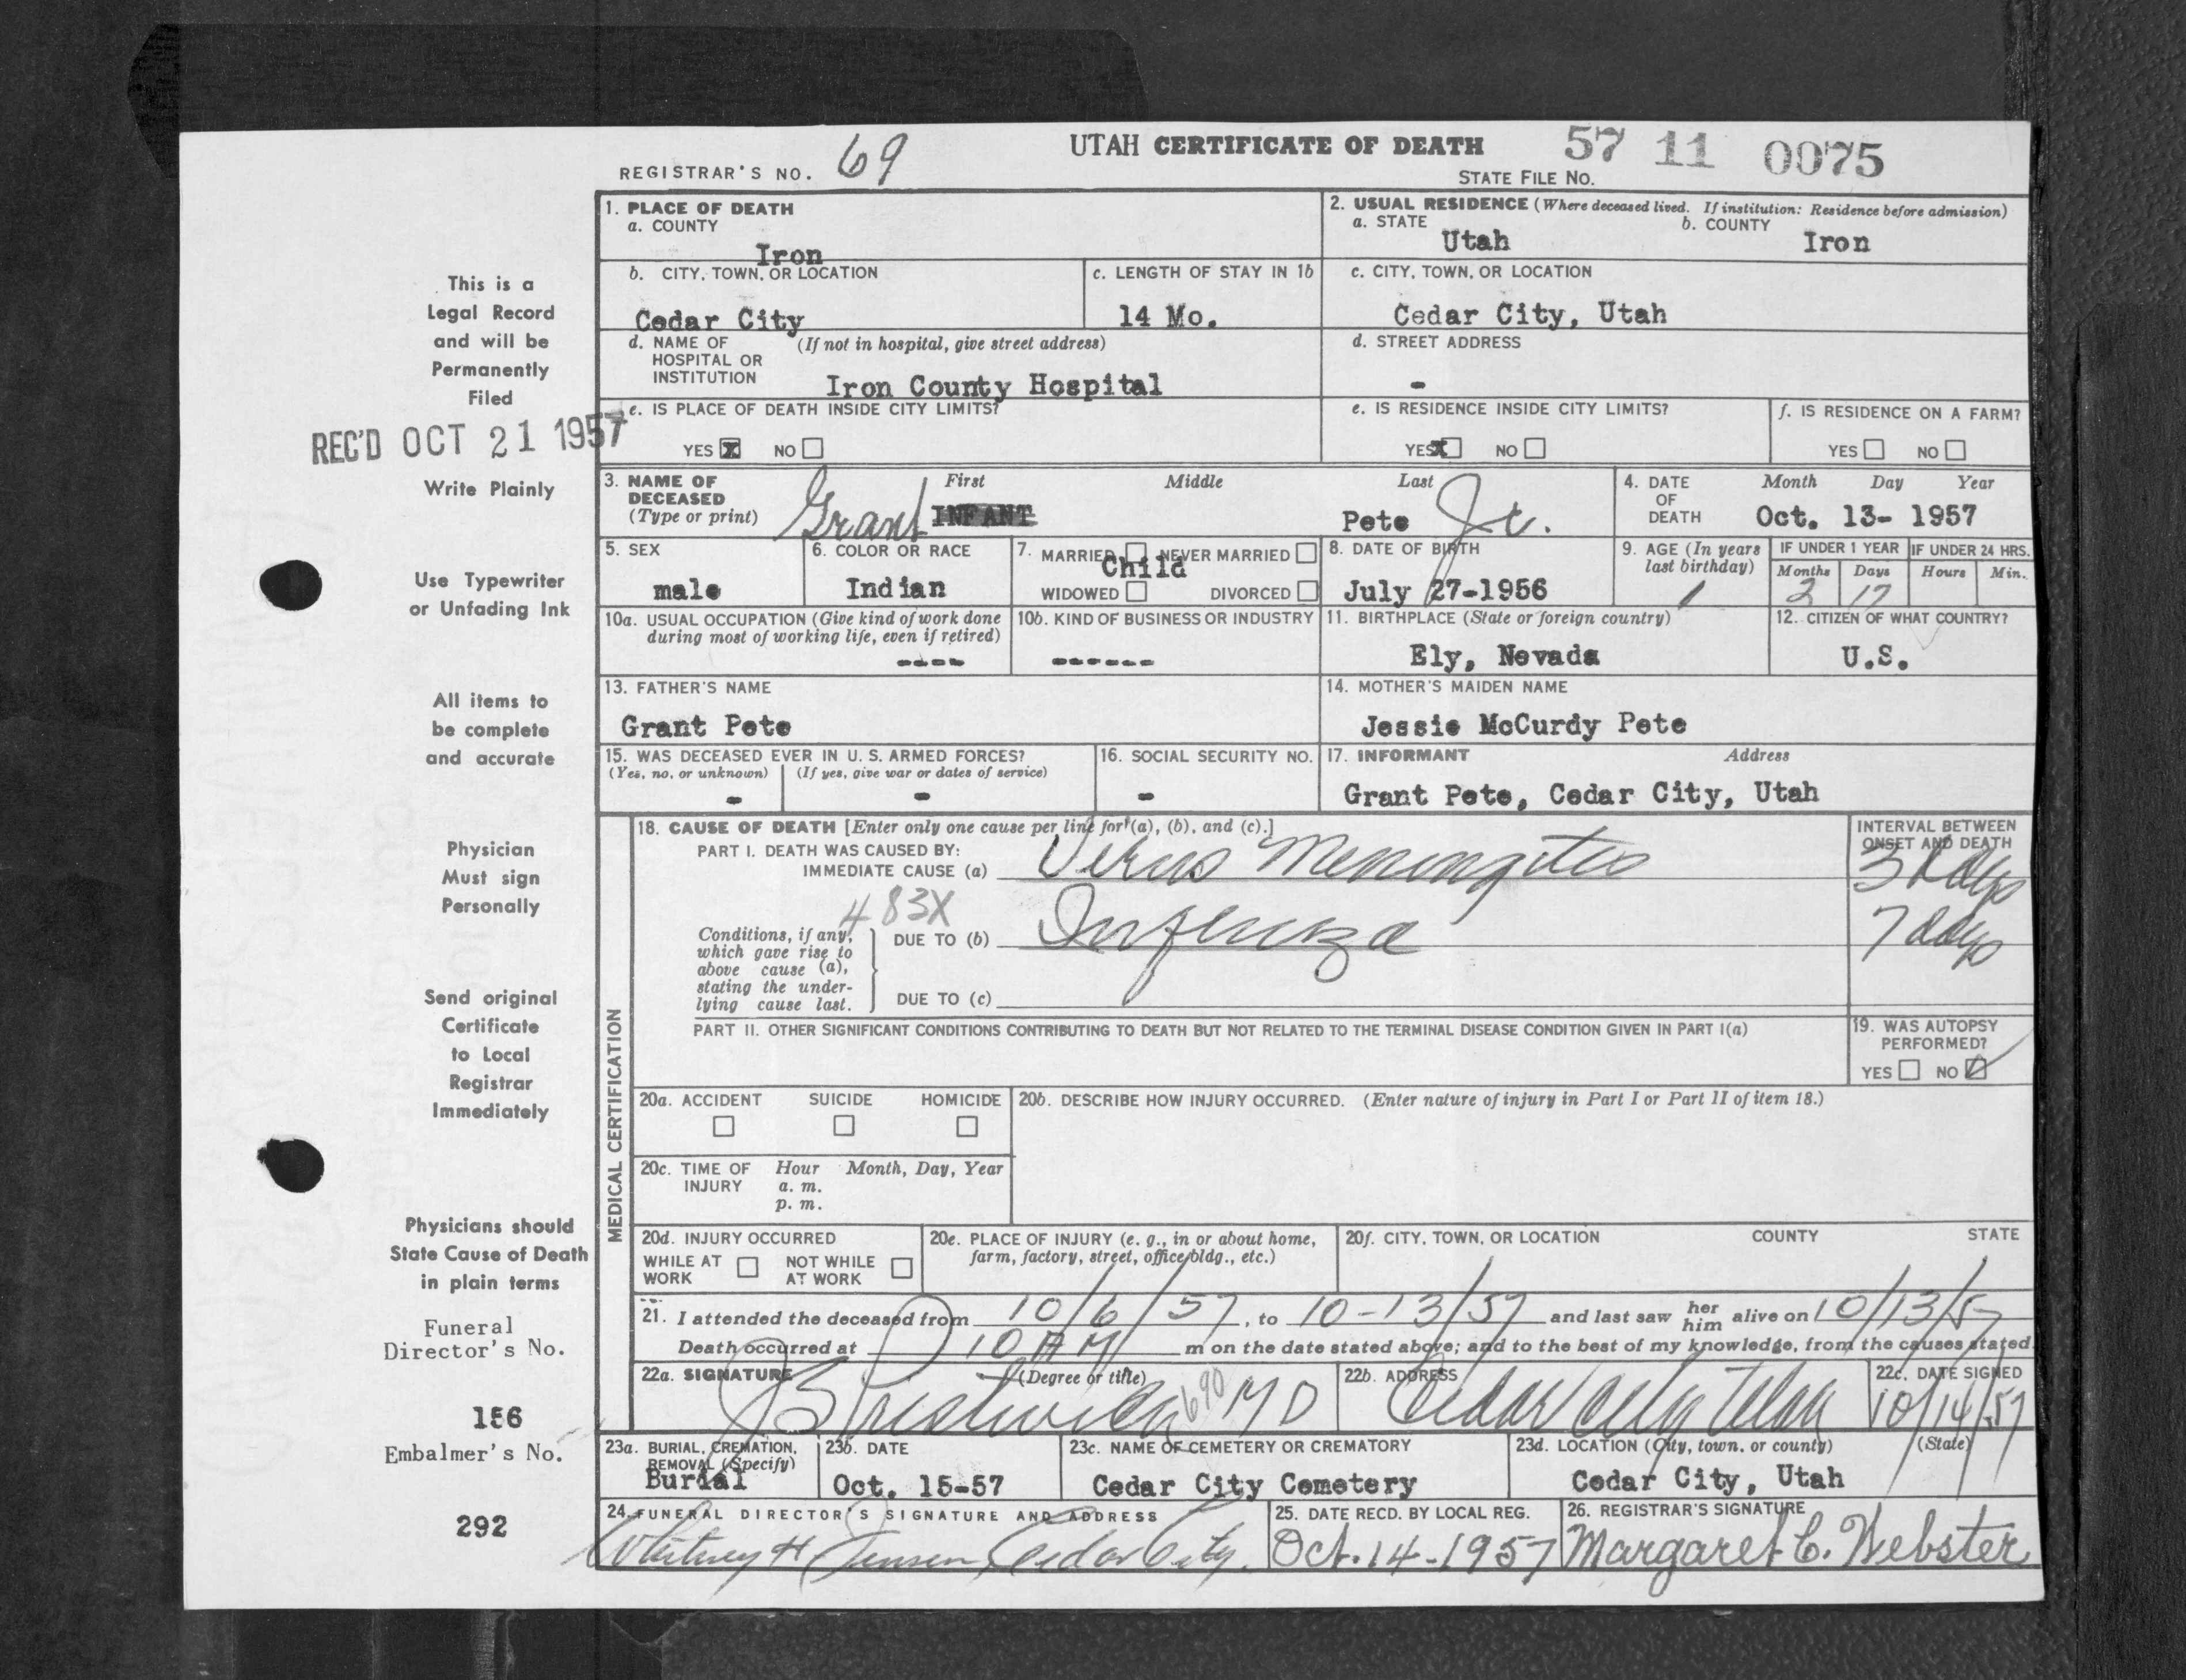 UTAH CERTIFICATE OF DEATH 57 11 0075
REGISTRAR'S NO. 69 STATE FILE NO.
This is a
Legal Record
and will be
Permanently
Filed
REC'D OCT 21 1957
Write Plainly
Use Typewriter
or Unfading Ink
All items to
be complete
and accurate
Physician
Must sign
Personally
Send original
Certificate
to Local
Registrar
Immediately
Physicians should
State Cause of Death
in plain terms
Funeral
Director's No.
156
Embalmer's No.
292
1. PLACE OF DEATH
a. COUNTY
Iron
2. USUAL RESIDENCE (Where deceased lived. If institution: Residence before admission)
a. STATE b. COUNTY
Utah Iron
b. CITY, TOWN, OR LOCATION
Cedar City
c. LENGTH OF STAY IN 1b
14 Mo.
c. CITY, TOWN, OR LOCATION
Cedar City, Utah
d. NAME OF (If not in hospital, give street address)
HOSPITAL OR
INSTITUTION Iron County Hospital
d. STREET ADDRESS
-
e. IS PLACE OF DEATH INSIDE CITY LIMITS?
YES X NO
e. IS RESIDENCE INSIDE CITY LIMITS?
YES X NO
f. IS RESIDENCE ON A FARM?
YES NO
3. NAME OF First Middle Last
DECEASED
(Type or print) Grant INFANT Pete Jr.
4. DATE Month Day Year
OF
DEATH Oct. 13- 1957
5. SEX
male
6. COLOR OR RACE
Indian
7. MARRIED NEVER MARRIED
Child
WIDOWED DIVORCED
8. DATE OF BIRTH
July 27-1956
9. AGE (In years
last birthday)
1
IF UNDER 1 YEAR IF UNDER 24 HRS.
Months Days Hours Min.
2 17
10a. USUAL OCCUPATION (Give kind of work done
during most of working life, even if retired)
----
10b. KIND OF BUSINESS OR INDUSTRY
------
11. BIRTHPLACE (State or foreign country)
Ely, Nevada
12. CITIZEN OF WHAT COUNTRY?
U.S.
13. FATHER'S NAME
Grant Pete
14. MOTHER'S MAIDEN NAME
Jessie McCurdy Pete
15. WAS DECEASED EVER IN U. S. ARMED FORCES?
(Yes, no, or unknown) (If yes, give war or dates of service)
- -
16. SOCIAL SECURITY NO.
-
17. INFORMANT Address
Grant Pete, Cedar City, Utah
MEDICAL CERTIFICATION
18. CAUSE OF DEATH [Enter only one cause per line for (a), (b), and (c).]
PART I. DEATH WAS CAUSED BY:
IMMEDIATE CAUSE (a) Virus Meningitis
INTERVAL BETWEEN
ONSET AND DEATH
3 days
483X
Conditions, if any,
which gave rise to
above cause (a),
stating the under-
lying cause last.
DUE TO (b) Influenza 7 days
DUE TO (c)
PART II. OTHER SIGNIFICANT CONDITIONS CONTRIBUTING TO DEATH BUT NOT RELATED TO THE TERMINAL DISEASE CONDITION GIVEN IN PART I(a)
19. WAS AUTOPSY
PERFORMED?
YES NO
20a. ACCIDENT SUICIDE HOMICIDE
20b. DESCRIBE HOW INJURY OCCURRED. (Enter nature of injury in Part I or Part II of item 18.)
20c. TIME OF Hour Month, Day, Year
INJURY a. m.
p. m.
20d. INJURY OCCURRED
WHILE AT NOT WHILE
WORK AT WORK
20e. PLACE OF INJURY (e. g., in or about home,
farm, factory, street, office bldg., etc.)
20f. CITY, TOWN, OR LOCATION COUNTY STATE
21. I attended the deceased from 10/6/57, to 10-13/57 and last saw her him alive on 10/13/57
Death occurred at 10 AM m on the date stated above; and to the best of my knowledge, from the causes stated
22a. SIGNATURE (Degree or title)
Prestwich 690 MD
22b. ADDRESS
Cedar City Utah
22c. DATE SIGNED
10/14/57
23a. BURIAL, CREMATION,
REMOVAL (Specify)
Burial
23b. DATE
Oct. 15-57
23c. NAME OF CEMETERY OR CREMATORY
Cedar City Cemetery
23d. LOCATION (City, town, or county) (State)
Cedar City, Utah
24. FUNERAL DIRECTOR'S SIGNATURE AND ADDRESS
Whitney H Jensen, Cedar City.
25. DATE RECD. BY LOCAL REG.
Oct. 14-1957
26. REGISTRAR'S SIGNATURE
Margaret C. Webster